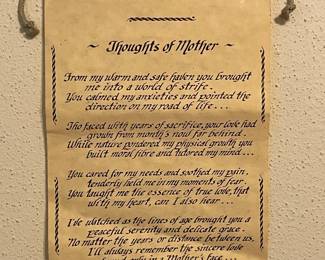 ~ Thoughts of Mother ~
From my warm and safe haven you brought
me into a world of strife.
You calmed my anxieties and pointed the
direction on my road of life...
Tho faced with years of sacrifice, your love had
grown from month's now far behind.
While nature pondered my physical growth you
built moral fibre and tutored my mind...
You cared for my needs and soothed my pain,
tenderly held me in my moments of fear.
You taught me the essence of true love, that
with my heart, can I also hear...
I've watched as the lines of age brought you a
peaceful serenity and delicate grace.
No matter the years or distance between us,
I'll always remember the sincere love
only in a Mother's face...